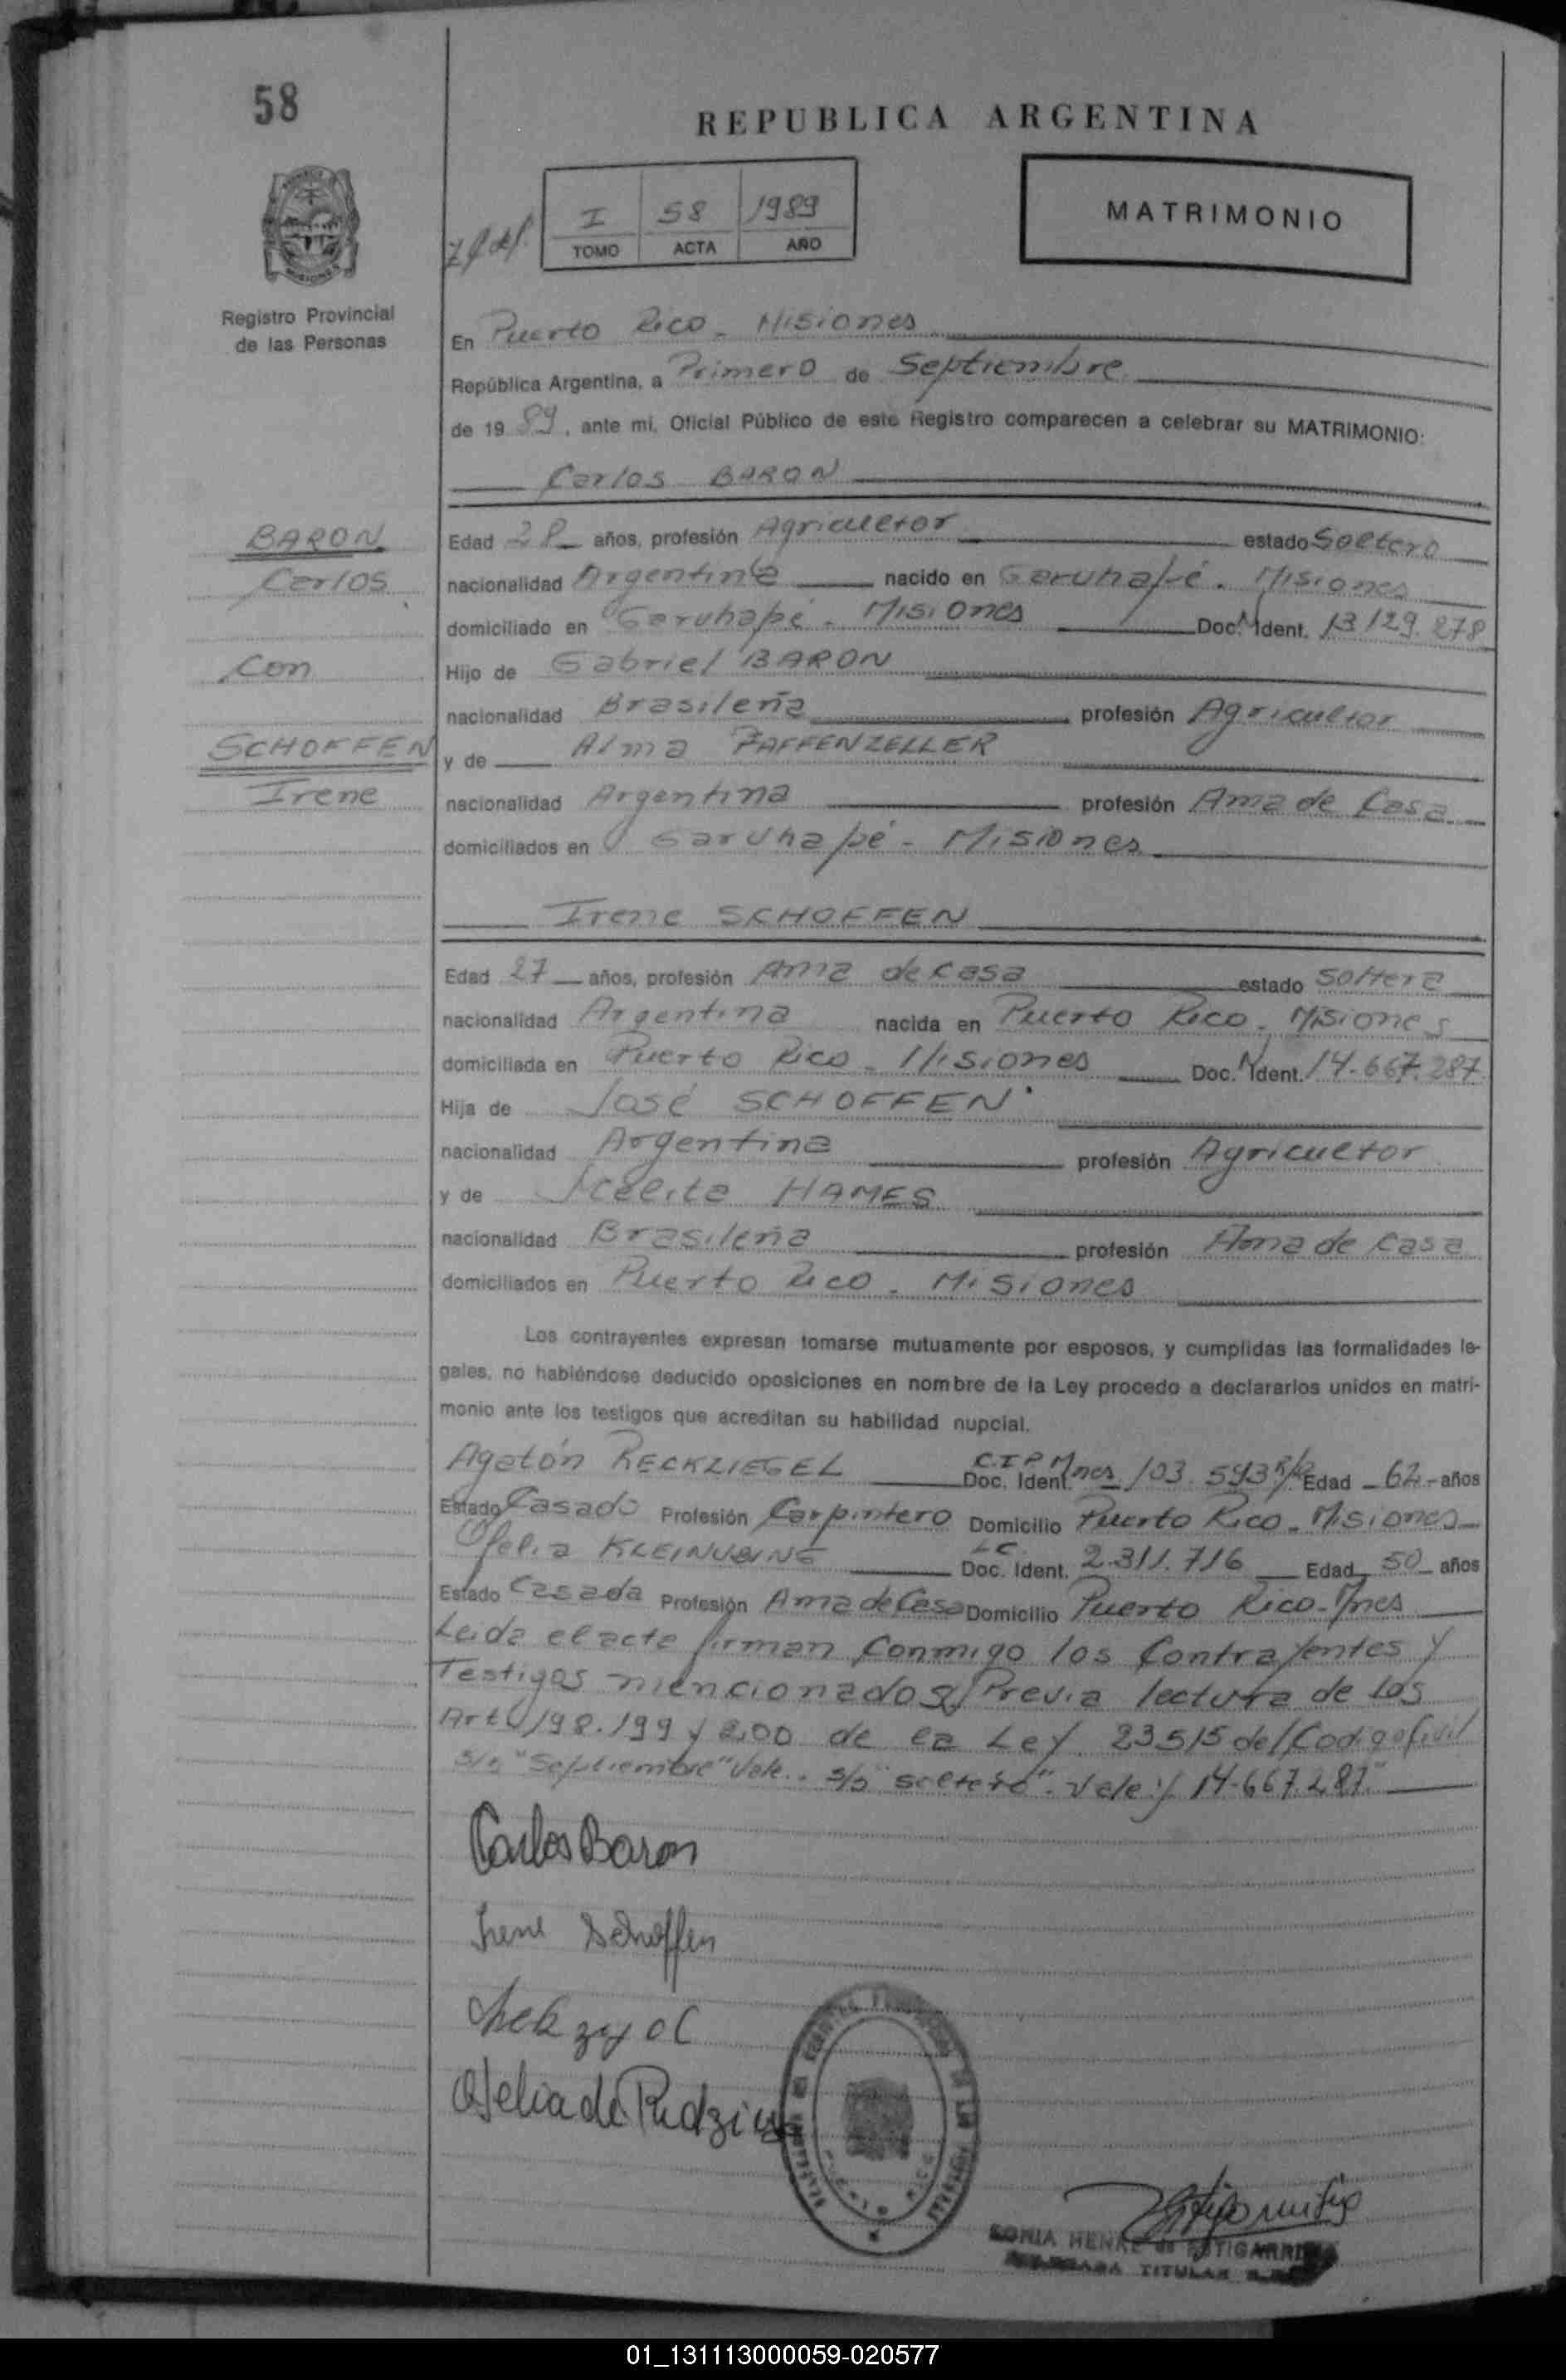 58
REPUBLICA ARGENTINA
I 58 1989
TOMO ACTA AÑO
MATRIMONIO
Registro Provincial
de las Personas
En Puerto Rico - Misiones
República Argentina, a Primero de Septiembre
de 19 89, ante mi, Oficial Público de este Registro comparecen a celebrar su MATRIMONIO:
Carlos BARON
BARON
Carlos
Con
SCHOFFEN
Irene
Edad 28 años, profesión Agricultor estado Soltero
nacionalidad Argentina nacido en Garuhapé - Misiones
domiciliado en Garuhapé - Misiones Doc. N Ident. 13.129.278
Hijo de Gabriel BARON
nacionalidad Brasileña profesión Agricultor
y de Alma PAFFENZELLER
nacionalidad Argentina profesión Ama de Casa
domiciliados en Garuhapé - Misiones
Irene SCHOFFEN
Edad 27 años, profesión Ama de Casa estado Soltera
nacionalidad Argentina nacida en Puerto Rico - Misiones
domiciliada en Puerto Rico - Misiones Doc. N Ident. 14.667.287
Hija de José SCHOFFEN
nacionalidad Argentina profesión Agricultor
y de HAMES
nacionalidad Brasileña profesión Ama de Casa
domiciliados en Puerto Rico - Misiones
Los contrayentes expresan tomarse mutuamente por esposos, y cumplidas las formalidades le-
gales, no habiéndose deducido oposiciones en nombre de la Ley procedo a declararlos unidos en matri-
monio ante los testigos que acreditan su habilidad nupcial.
Agatón RECKZIEGEL C.I.P. Mnes Doc. Ident. 103.593 Edad 62 años
Estado Casado Profesión Carpintero Domicilio Puerto Rico - Misiones
Ofelia KLEINUBING LC. Doc. Ident. 2.311.716 Edad 50 años
Estado Casada Profesión Ama de Casa Domicilio Puerto Rico - Mnes
Leida el acta firman Conmigo los Contrayentes y
Testigos mencionados Previa lectura de los
Art. 198.199 y 200 de la Ley 23515 del Codigo Civil
S/r "Septiembre" Vale. S/r "soltero". Vale y 14.667.287"
Carlos Baron
Irene Schoffen
Ofelia de
PUERTO RICO
SONIA HENKE de ESTIGARRIBIA
TITULAR
01_131113000059-020577